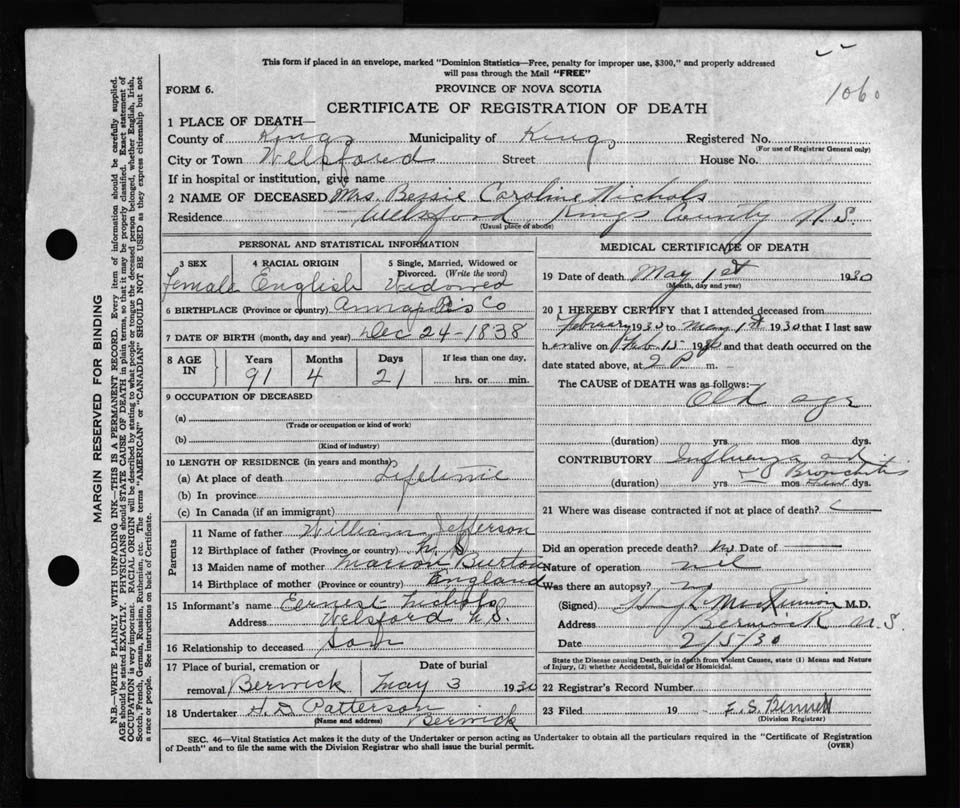 This form if placed in an envelope, marked "Dominion Statistics—Free, penalty for improper use, $300," and properly addressed
will pass through the Mail "FREE"
1060
FORM 6.
PROVINCE OF NOVA SCOTIA
CERTIFICATE OF REGISTRATION OF DEATH
1 PLACE OF DEATH—
County of Kings Municipality of Kings Registered No.
(For use of Registrar General only)
City or Town Welsford Street House No.
If in hospital or institution, give name
2 NAME OF DECEASED Mrs. Bessie Caroline Nichols
Residence Welsford, Kings County N.S.
(Usual place of abode)
PERSONAL AND STATISTICAL INFORMATION
3 SEX 4 RACIAL ORIGIN 5 Single, Married, Widowed or
Divorced. (Write the word)
Female English Widowed
6 BIRTHPLACE (Province or country) Annapolis Co
7 DATE OF BIRTH (month, day and year) Dec 24-1838
8 AGE IN Years Months Days If less than one day,
91 4 21 hrs. or min.
9 OCCUPATION OF DECEASED
(a)
(Trade or occupation or kind of work)
(b)
(Kind of industry)
10 LENGTH OF RESIDENCE (in years and months)
(a) At place of death Lifetime
(b) In province
(c) In Canada (if an immigrant)
Parents
11 Name of father William Jefferson
12 Birthplace of father (Province or country) N. S.
13 Maiden name of mother Marion Burton
14 Birthplace of mother (Province or country) England
15 Informant's name Ernest Nichols
Address Welsford N.S.
16 Relationship to deceased Son
17 Place of burial, cremation or Date of burial
removal Berwick May 3 1930
18 Undertaker H. D Patterson
(Name and address) Berwick
MEDICAL CERTIFICATE OF DEATH
19 Date of death May 1st 1930
(Month, day and year)
20 I HEREBY CERTIFY that I attended deceased from
February 1930 to May 1st 1930 that I last saw
her alive on Feb 15 1930 and that death occurred on the
date stated above, at 2 P. m.
The CAUSE of DEATH was as follows:
Old age
(duration) yrs mos dys.
CONTRIBUTORY Influenza and
Bronchitis
(duration) yrs mos dys.
21 Where was disease contracted if not at place of death?
Did an operation precede death? No Date of
Nature of operation nil
Was there an autopsy? no
(Signed) M.D.
Address Berwick N.S.
Date 2/5/30
State the Disease causing Death, or in death from Violent Causes, state (1) Means and Nature
of Injury, (2) whether Accidental, Suicidal or Homicidal.
22 Registrar's Record Number
23 Filed 19 F. S. Bennett
(Division Registrar)
SEC. 46—Vital Statistics Act makes it the duty of the Undertaker or person acting as Undertaker to obtain all the particulars required in the "Certificate of Registration
of Death" and to file the same with the Division Registrar who shall issue the burial permit.
(OVER)
MARGIN RESERVED FOR BINDING
N.B.—WRITE PLAINLY WITH UNFADING INK—THIS IS A PERMANENT RECORD. Every item of information should be carefully supplied.
AGE should be stated EXACTLY. PHYSICIANS should STATE CAUSE OF DEATH in plain terms, so that it may be properly classified. Exact statement of
OCCUPATION is very important. RACIAL ORIGIN will be described by stating to what people or tongue the deceased person belonged, whether English, Irish,
Scotch, French, German, Russian, Ruthenian, etc. The terms "AMERICAN" or "CANADIAN" SHOULD NOT BE USED as they express citizenship but not
a race or people. See instructions on back of Certificate.